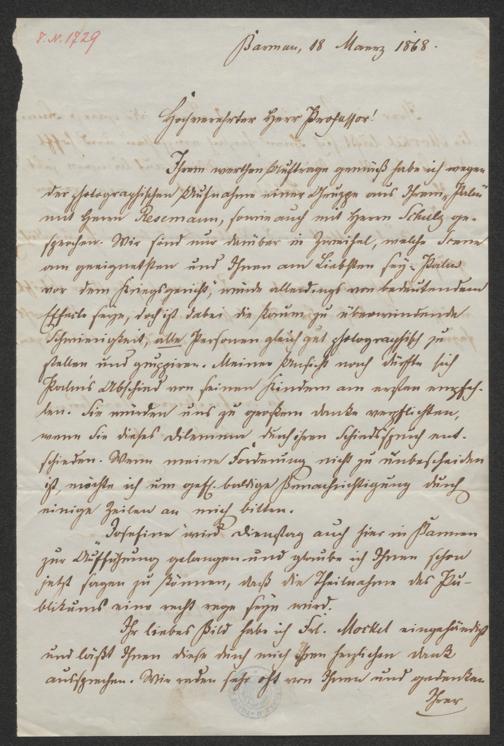 T.N. 1729
Barmen, 18 Maerz 1868.
Hochverehrter Herr Professor!
Ihrem werthen Auftrage gemäß habe ich wegen
der photographischen Aufnahme einer Gruppe aus Ihrem „Palm“
mit Herrn Resemann, sowie auch mit Herrn Schulz ge-
sprochen. Wir sind nur darüber in Zweifel, welche Scene
am geeignetsten und Ihnen am Liebsten sey. „Palm
vor dem Kriegsgericht“, würde allerdings von bedeutendem
Effecte seye, doch ist dabei die kaum zu überwindende
Schwierigkeit, alle Personen gleich gut photographisch zu
stellen und gruppiren. Meiner Ansicht nach dürfte sich
Palms Abschied von seinen Kindern am ersten empfeh-
len. Sie würden uns zu großem Danke verpflichten,
wenn Sie dieses Dilemma, durch ihren Schiedsspruch ent-
schieden. Wenn meine Forderung nicht zu unbescheiden
ist, möchte ich um gef. baldige Benachrichtigung durch
einige Zeilen an mich bitten.
„Josefine“ wird Dienstag auch hier in Barmen
zur Aufführung gelangen und glaube ich Ihnen schon
jetzt sagen zu können, daß die Theilnahme des Pu-
blikums eine recht rege seyn wird.
Ihr liebes Bild habe ich Frl. Morkel eingehändigt
und läßt Ihnen diese durch mich Ihren herzlichen Dank
aussprechen. Wir reden sehr oft von Ihnen und gedenken
Ihrer